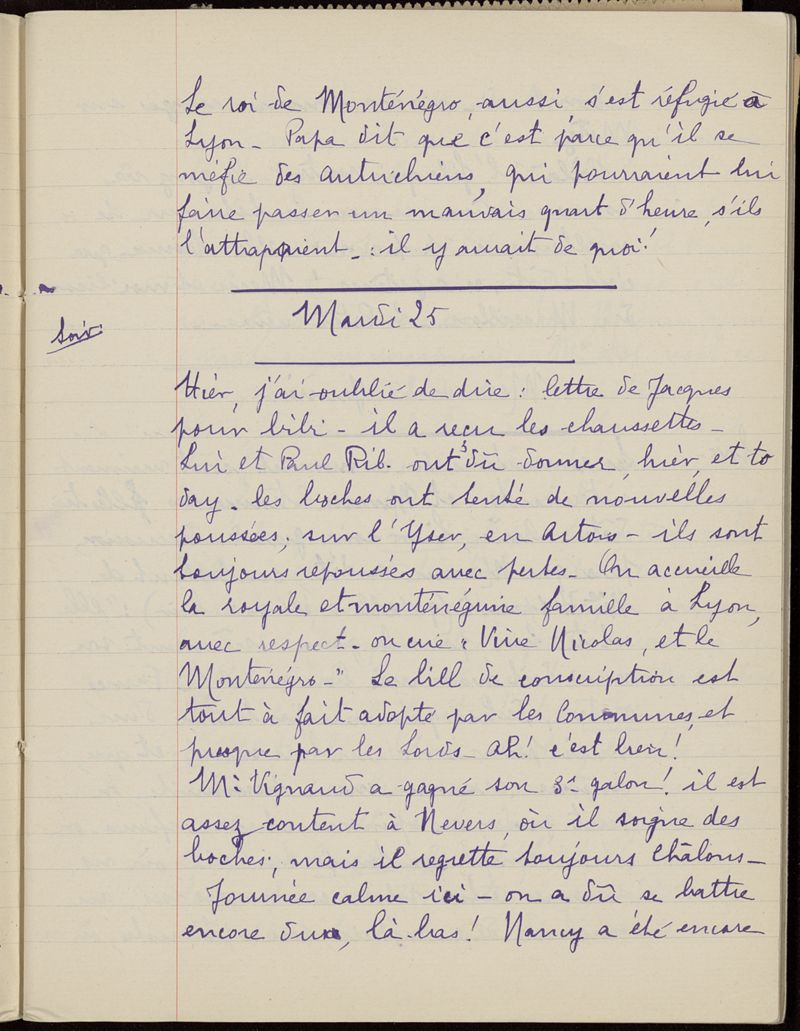 Le roi de Monténégro, aussi, s'est réfugié à
Lyon - Papa dit que c'est parce qu'il se
méfie des autrichiens, qui pourraient lui
faire passer un mauvais quart d'heure, s'ils
l'attrapaient - : il y aurait de quoi!
Mardi 25
Soir.
Hièr, j'ai oublié de dire : lettre de Jacques
pour bibi - il a reçu les chaussettes -
Lui et Paul Rib. ont dû donner, hièr, et to
day. les boches ont tenté de nouvelles
poussées, sur l'Yser, en Artois - ils sont
toujours repoussés avec pertes - On accueille
la royale et monténégrine famille à Lyon,
avec respect. on crie "Vive Nicolas, et le
Monténégro -" Le bill de conscription est
tout à fait adopté par les Communes, et
presque par les Lords - Ah! c'est bien!
Mr Vignaud a gagné son 3e galon! il est
assez content à Nevers, où il soigne des
boches; mais il regrette toujours Châlons -
Journée calme ici - on a dû se battre
encore dur, là-bas! Nancy a été encore